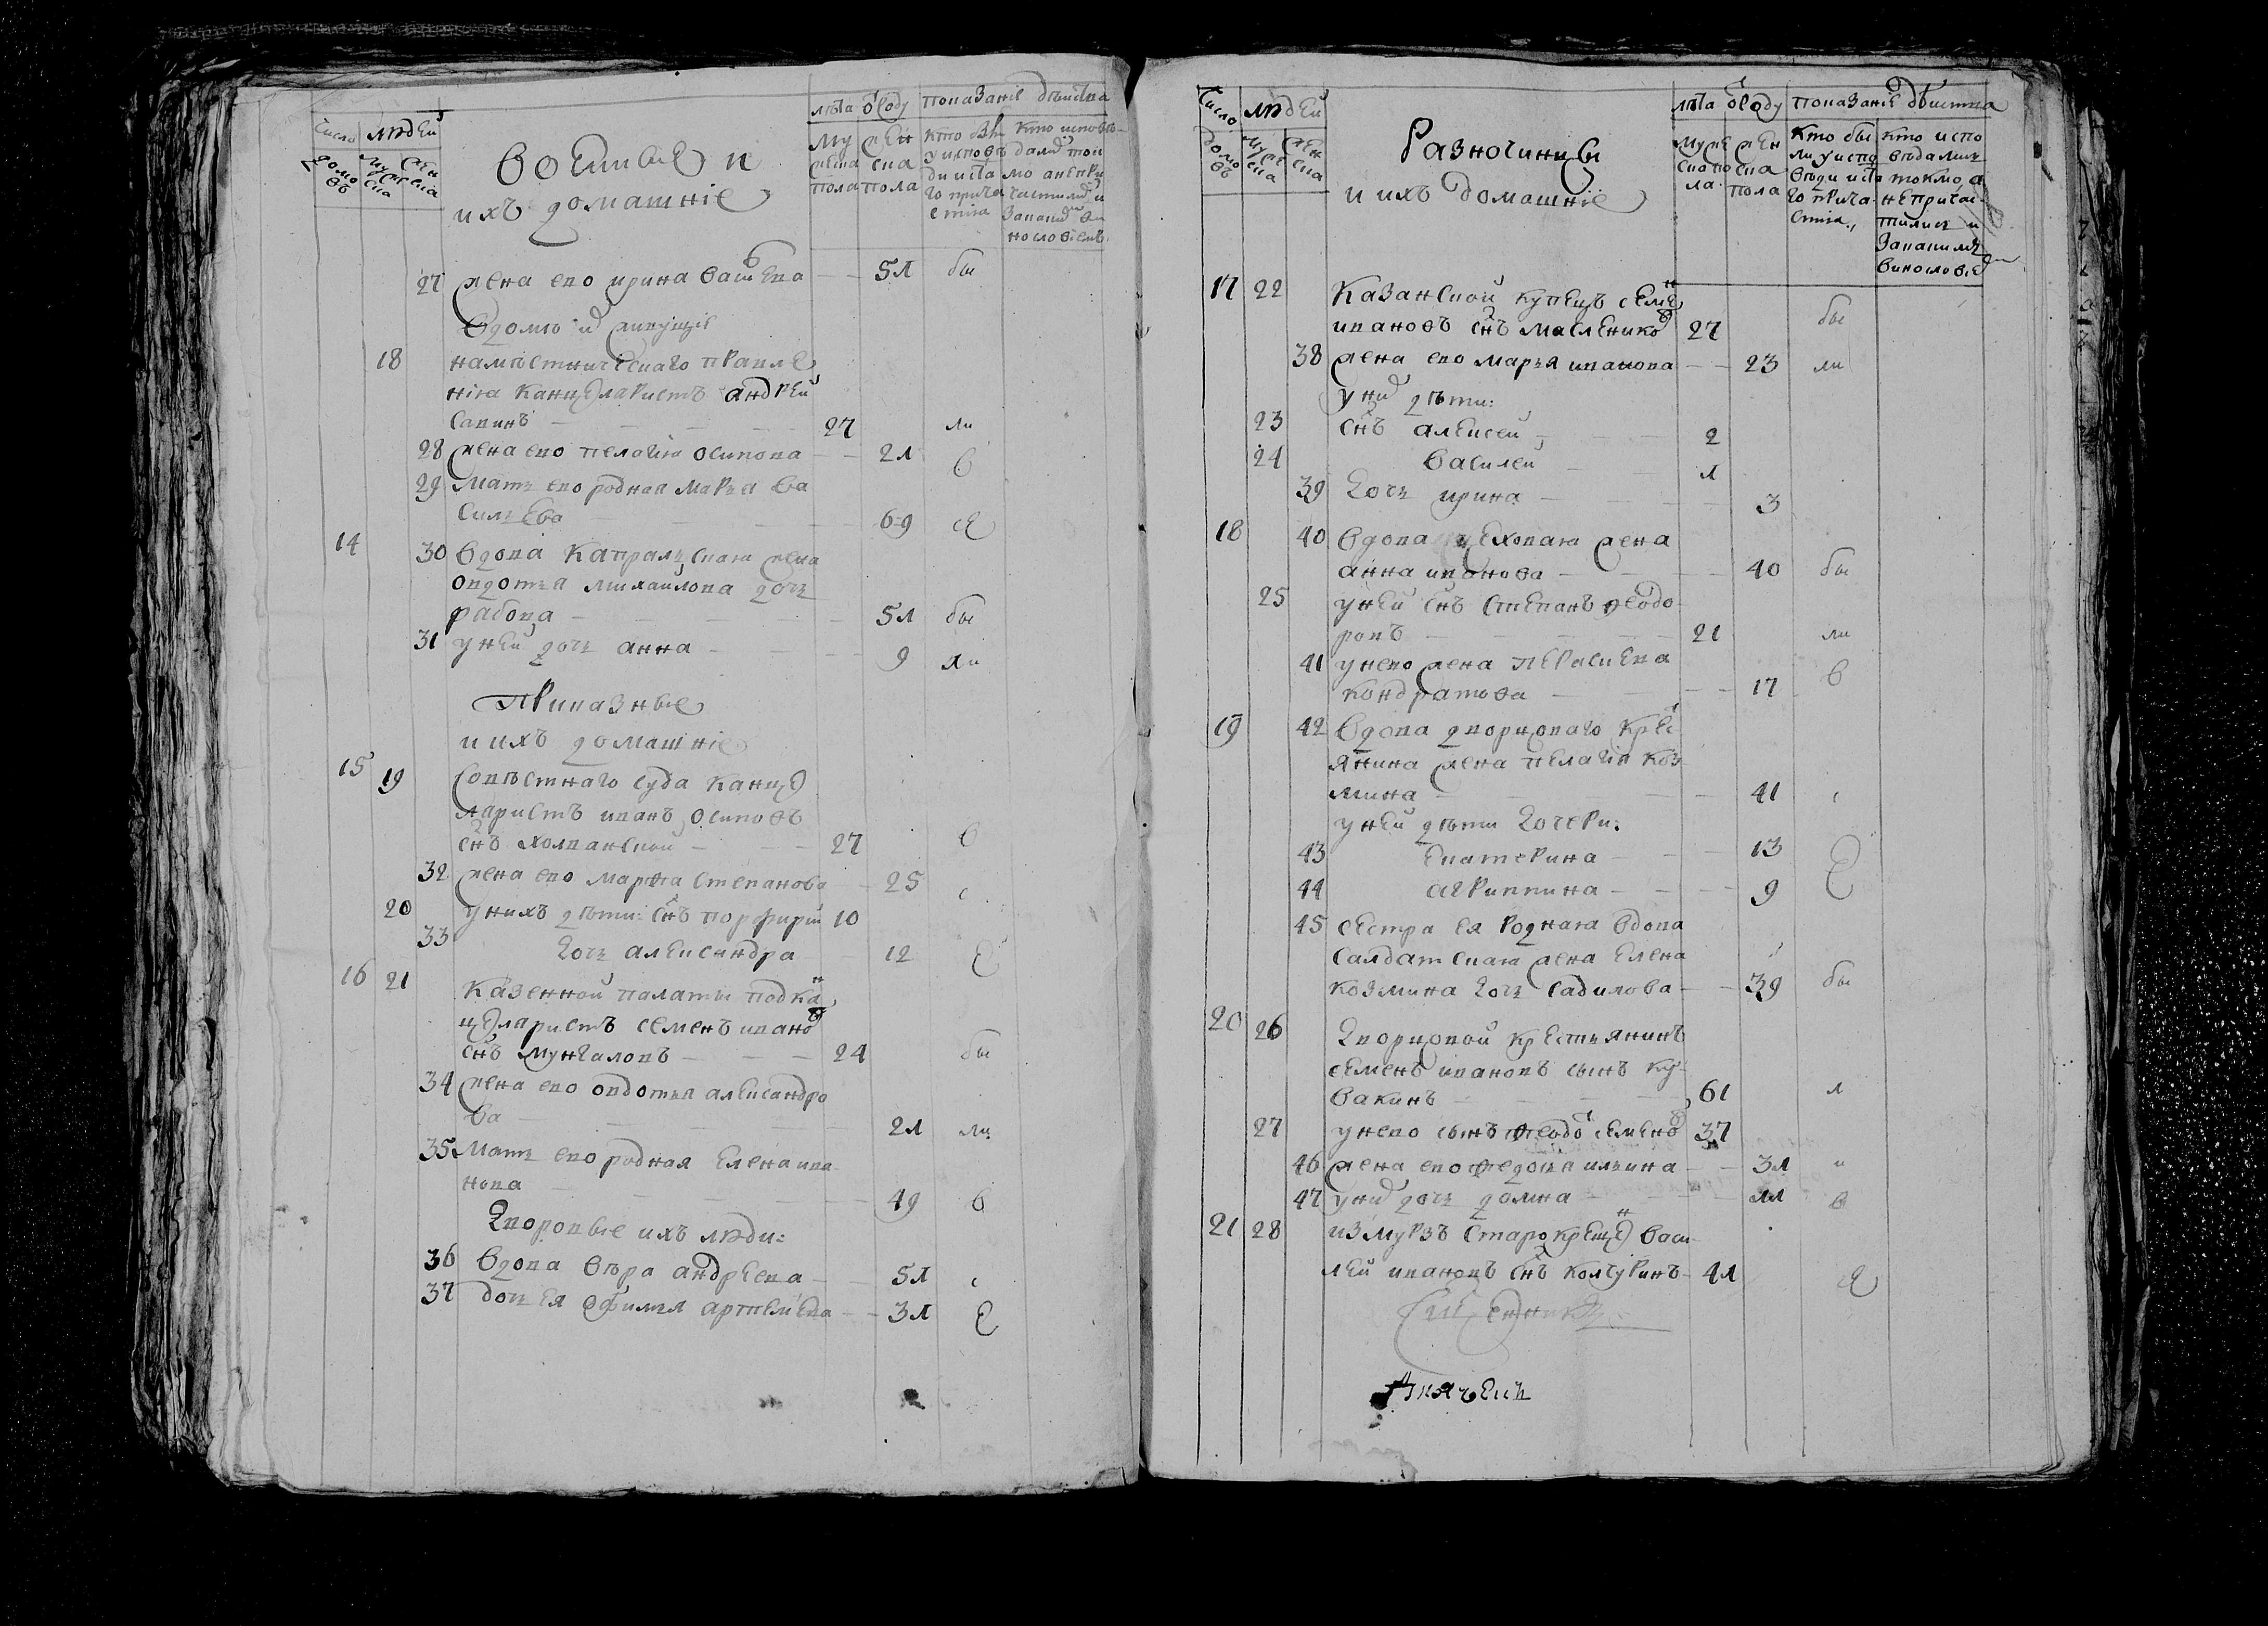 число людей
домовъ
мужеска
женска
военные и
ихъ домашнiе
лѣта ѿ роду
мужеска пола
женска пола
показанiе дѣиства
27 жена ево ирина васильева — — 51 бы
въ доме ихъ живущiе
18 намѣстническаго правле
нiя канцеляристъ андреи
савинъ — — 27 ли
28 жена ево пелагiя осипова — — 21
29 мать ево родная марья ва 
сильева — — 69 се
в
14 30 вдова капральская жена
овдотья михаилова дочь
рабова — — 51 бы
31 у неи дочь анна — — 9 ли
приказные
и ихъ домашнiе
15 19 совѣстнаго суда канце
ляристъ иванъ осиповъ
снъ холванскои — — 27 в
32 жена ево марфа степанова — 25 с
20 у нихъ дѣти: снъ порфирiи 10
33 дочь александра — 12 е
16 21 казеннои палаты подкан
целяристъ семенъ иванов
снъ мунгаловъ — — 24 бы
34 жена ево овдотья александро
ва — — 21 ли
35 мать ево родная елена ива
нова — — 49 в
дворовые ихъ люди:
36 вдова вѣра андреева — 51 с
37 дочь ея офимья артемьева — — 31 е
число людей
домовъ
мужеска
женска
Разночинцы
и ихъ домашнiе
лѣта ѿ роду
мужеска пола
женска пола
показанiе дѣиства
кто были у исповеди и ста
го прича
стiя.,
кто испо
ведались
токмо, а
не причас
тились и
17 22 казанскои купецъ семен
ивановъ снъ масленников 27 бы
38 жена ево марья иванова — — 23 ли
у них дѣти:
23 снъ алексеи — — 2
24 василеи — 1
39 дочь ирина — — 3
18 40 вдова цеховая жена
анна иванова — — 40 бы
25 у неи снъ степанъ феодо
ровъ — — 21 ли
41 у нево жена параскева
кондратова — — 17 в
19 42 вдова дворцоваго крес
янина жена пелагiя коз
мина — — 41 с
у неи дѣти дочери:
43 екатерина — — 13
44 агриппина — — 9 е
45 сестра ея родная вдова
салдатская жена елена
козмина дочь садилова — — 39 бы
20 26 дворцовои крестьянинъ
семенъ ивановъ сынъ ку
вакинъ — — 61 л
27 у нево сынъ феодор семенов 37
46 жена ево федосья ильина — — 31 и
47 у них дочь домна — — 11 в
21 28 из мурзъ старокрещен васи
леи ивановъ снъ колчуринъ — 41 се